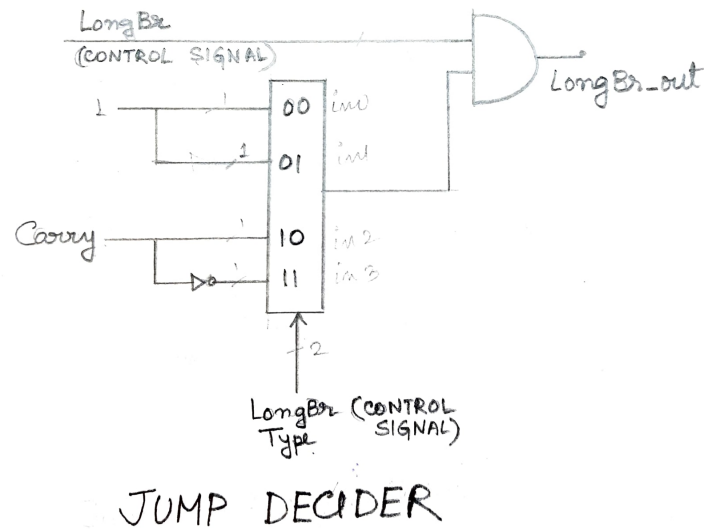 LongBr
(CONTROL SIGNAL)
LongBr_out
1
1
00
in0
1
1
01
in1
Carry
1
10
in2
1
11
in3
2
LongBr (CONTROL
Type SIGNAL)
JUMP DECIDER